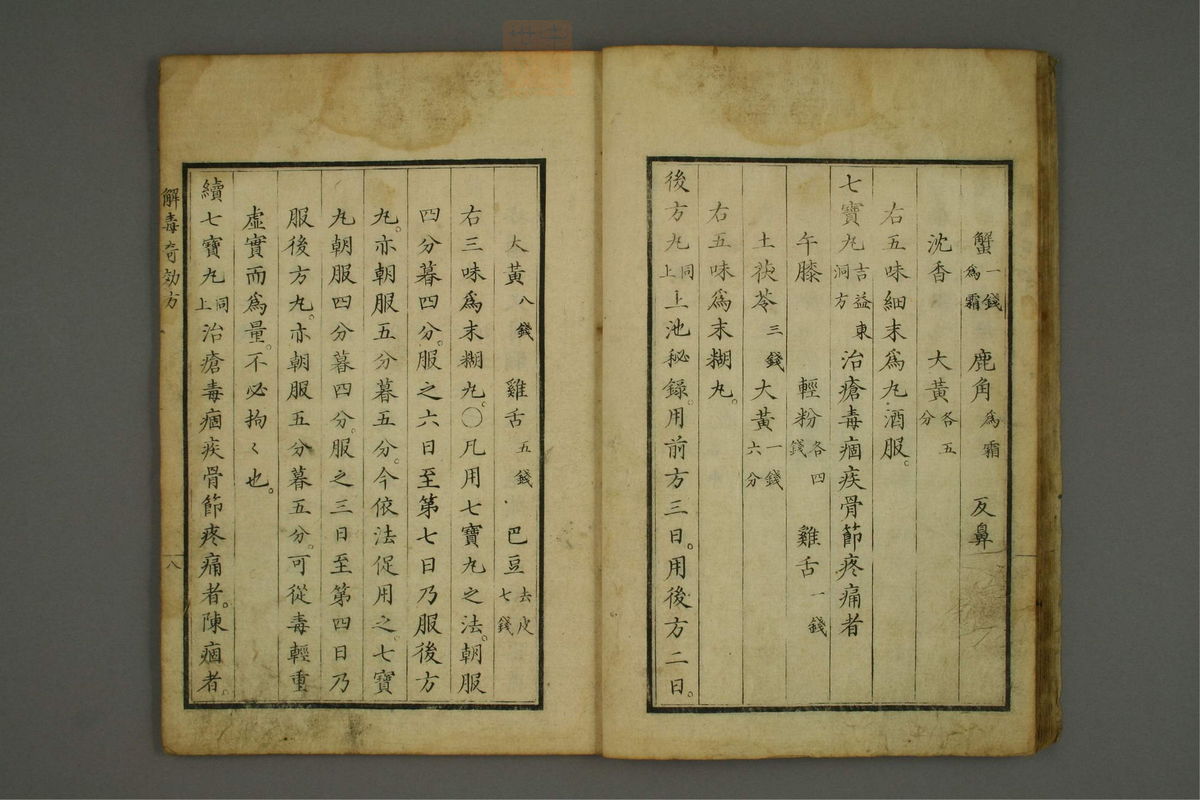 蟹一錢為霜　鹿角為霜　反鼻
沈香　大黃各五分
右五味細末爲丸酒服。
七寶丸吉益東洞方治瘡毒痼疾骨節疼痛者
午膝　輕粉各四錢　雞舌一錢
土茯苓三錢　大黃一錢六分
右五味爲末糊丸。
後方丸同上上池秘録。用前方三日。用後方二日。
大黃八錢　雞舌五錢　巴豆去皮七錢
右三味爲末糊丸。〇凡用七寶丸之法。朝服
四分暮四分。服之六日至第七日乃服後方
丸。亦朝服五分暮五分。今依法促用之。七寶
丸朝服四分暮四分。服之三日至第四日乃
服後方丸。亦朝服五分暮五分。可從毒輕重
虛實而爲量。不必拘〻也。
續七寶丸同上治瘡毒痼疾骨節疼痛者。陳痼者。
解毒奇効方
八